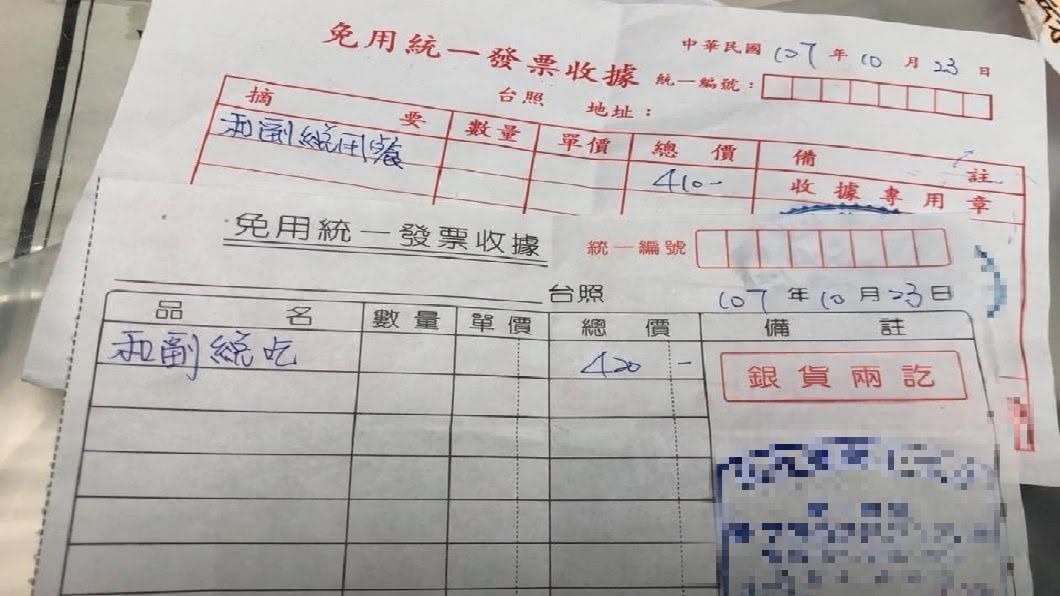 免用統一發票收據
中華民國 107 年 10 月 23 日
統一編號：
台照 地址：
摘 要 數量 單價 總 價 備 註
和副總用餐 410-
收據專用章
免用統一發票收據
統一編號
台照 107 年 10 月 23 日
品 名 數量 單價 總 價 備 註
和副總吃 420 -
銀貨兩訖